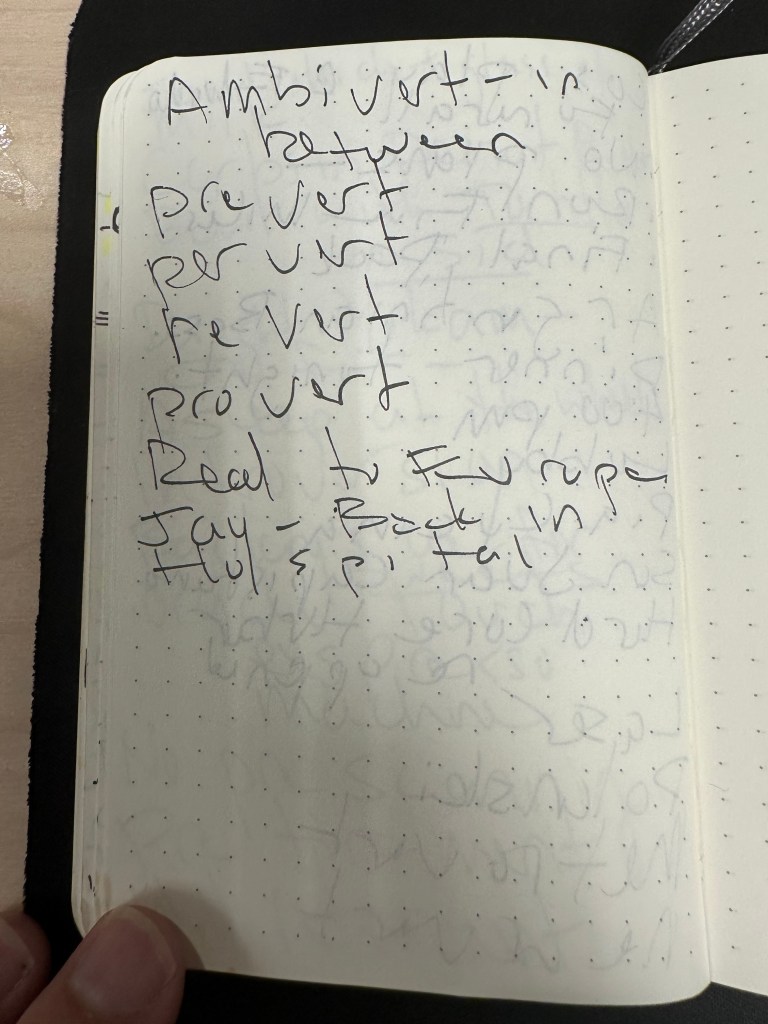 Ambivert - in
between
pre vert
per vert
re vert
pro vert
Read to Europe
Jay - Back in
Hospital